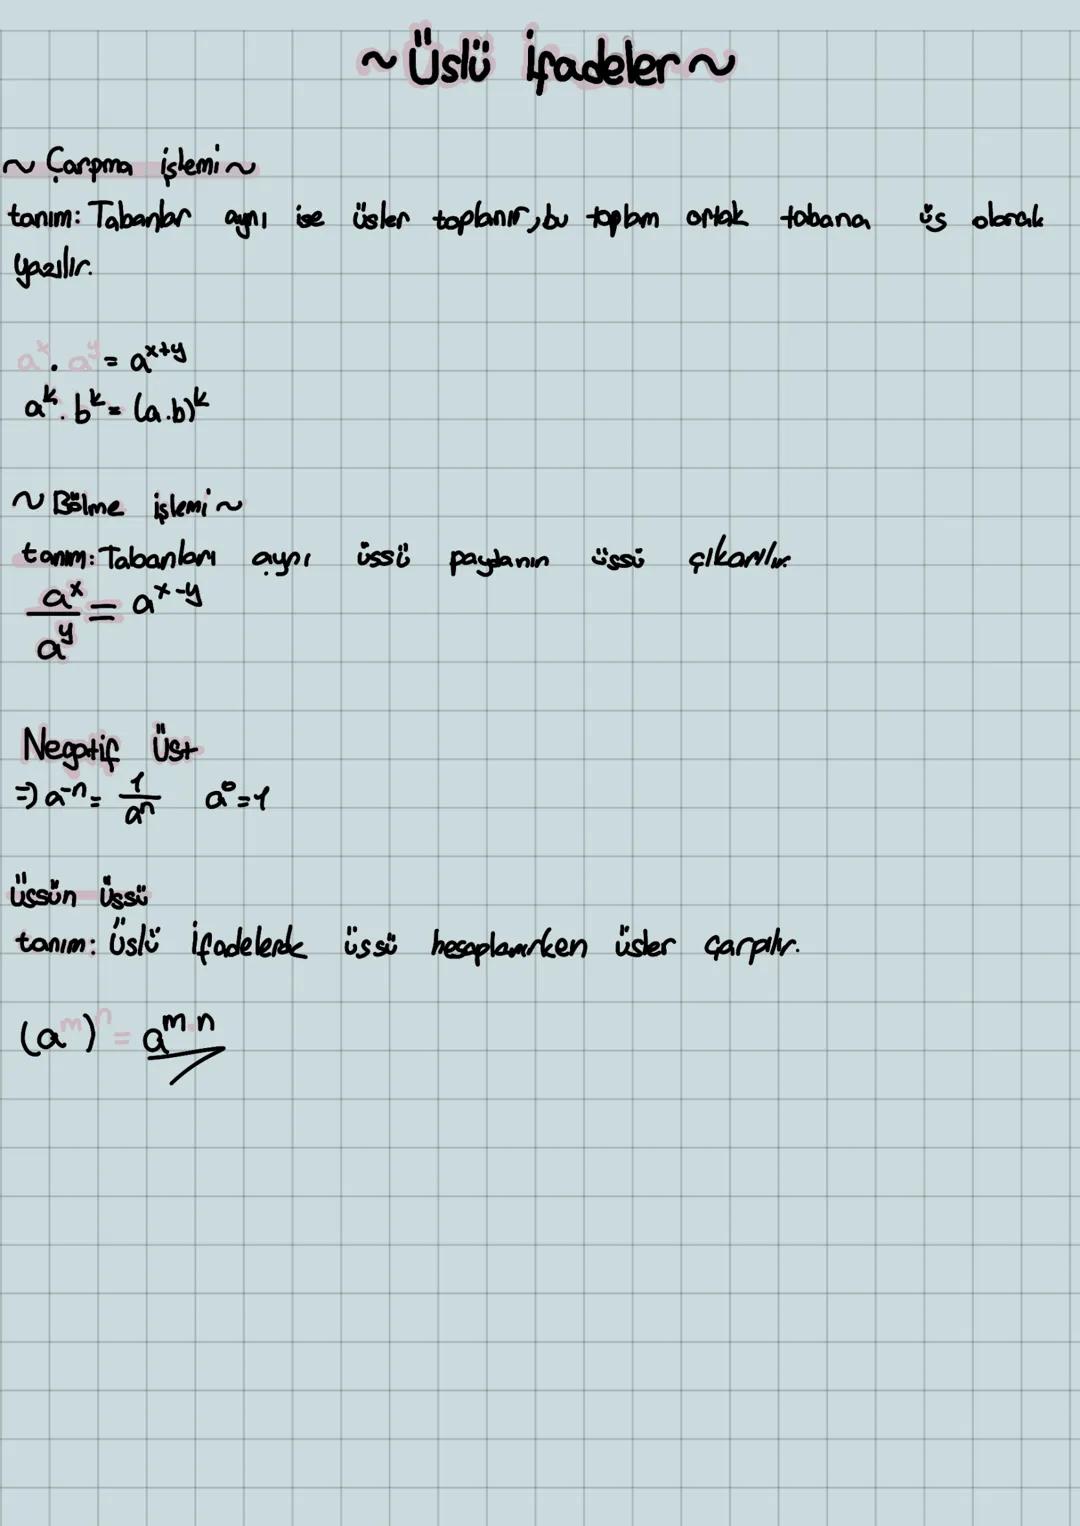 ~ Üslü İfadeler ~
~ Çarpma işlemi ~
tanım: Tabanlar aynı ise üsler toplanır, bu toplam ortak tabana üs olarak
yazılır.
aˣ . aʸ = aˣ⁺ʸ
aᵏ . bᵏ = (a.b)ᵏ
~ Bölme işlemi ~
tanım: Tabanları aynı üssü paydanın üssü çıkarılır.
aˣ/aʸ = aˣ⁻ʸ
Negatif Üst
⇒ a⁻ⁿ = 1/aⁿ a⁰ = 1
üssün üssü
tanım: Üslü İfadelerde üssü hesaplanırken üsler çarpılır.
(aᵐ)ⁿ = aᵐ·ⁿ